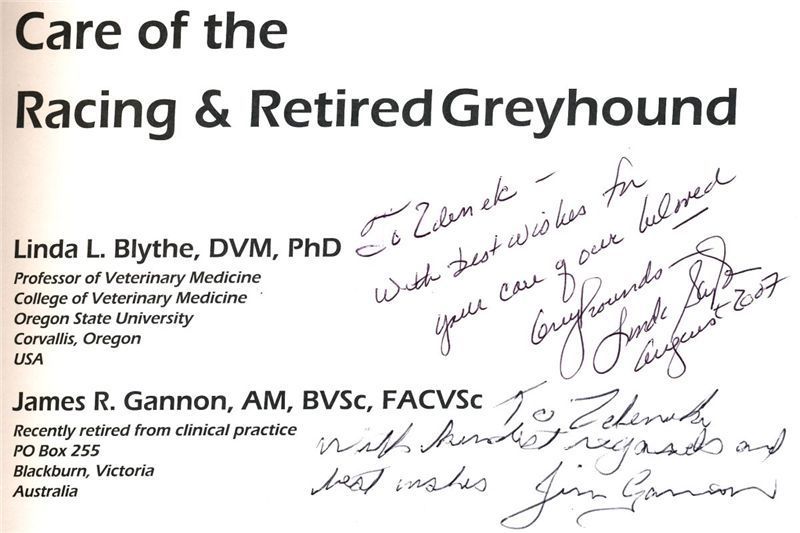 Care of the
Racing & Retired Greyhound
Linda L. Blythe, DVM, PhD
Professor of Veterinary Medicine
College of Veterinary Medicine
Oregon State University
Corvallis, Oregon
USA
To Zdenek —
With best wishes for
your care of our beloved
Greyhounds —
Linda Blythe
August 2007
James R. Gannon, AM, BVSc, FACVSc
Recently retired from clinical practice
PO Box 255
Blackburn, Victoria
Australia
To Zdenek,
With kindest regards and
best wishes Jim Gannon